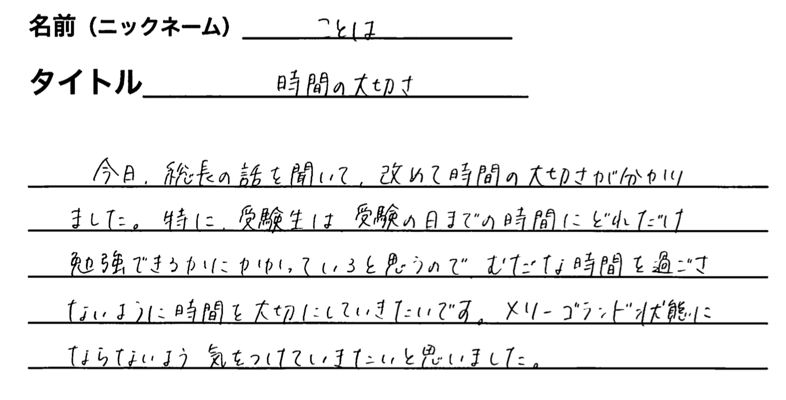 名前（ニックネーム） ことは
タイトル 時間の大切さ
今日、総長の話を聞いて、改めて時間の大切さが分かり
ました。特に、受験生は 受験の日までの時間に どれだけ
勉強できるかにかかっていると思うので むだな時間を過ごさ
ないように時間を大切にしていきたいです。メリーゴランド状態に
ならないよう 気をつけていきたいと思いました。